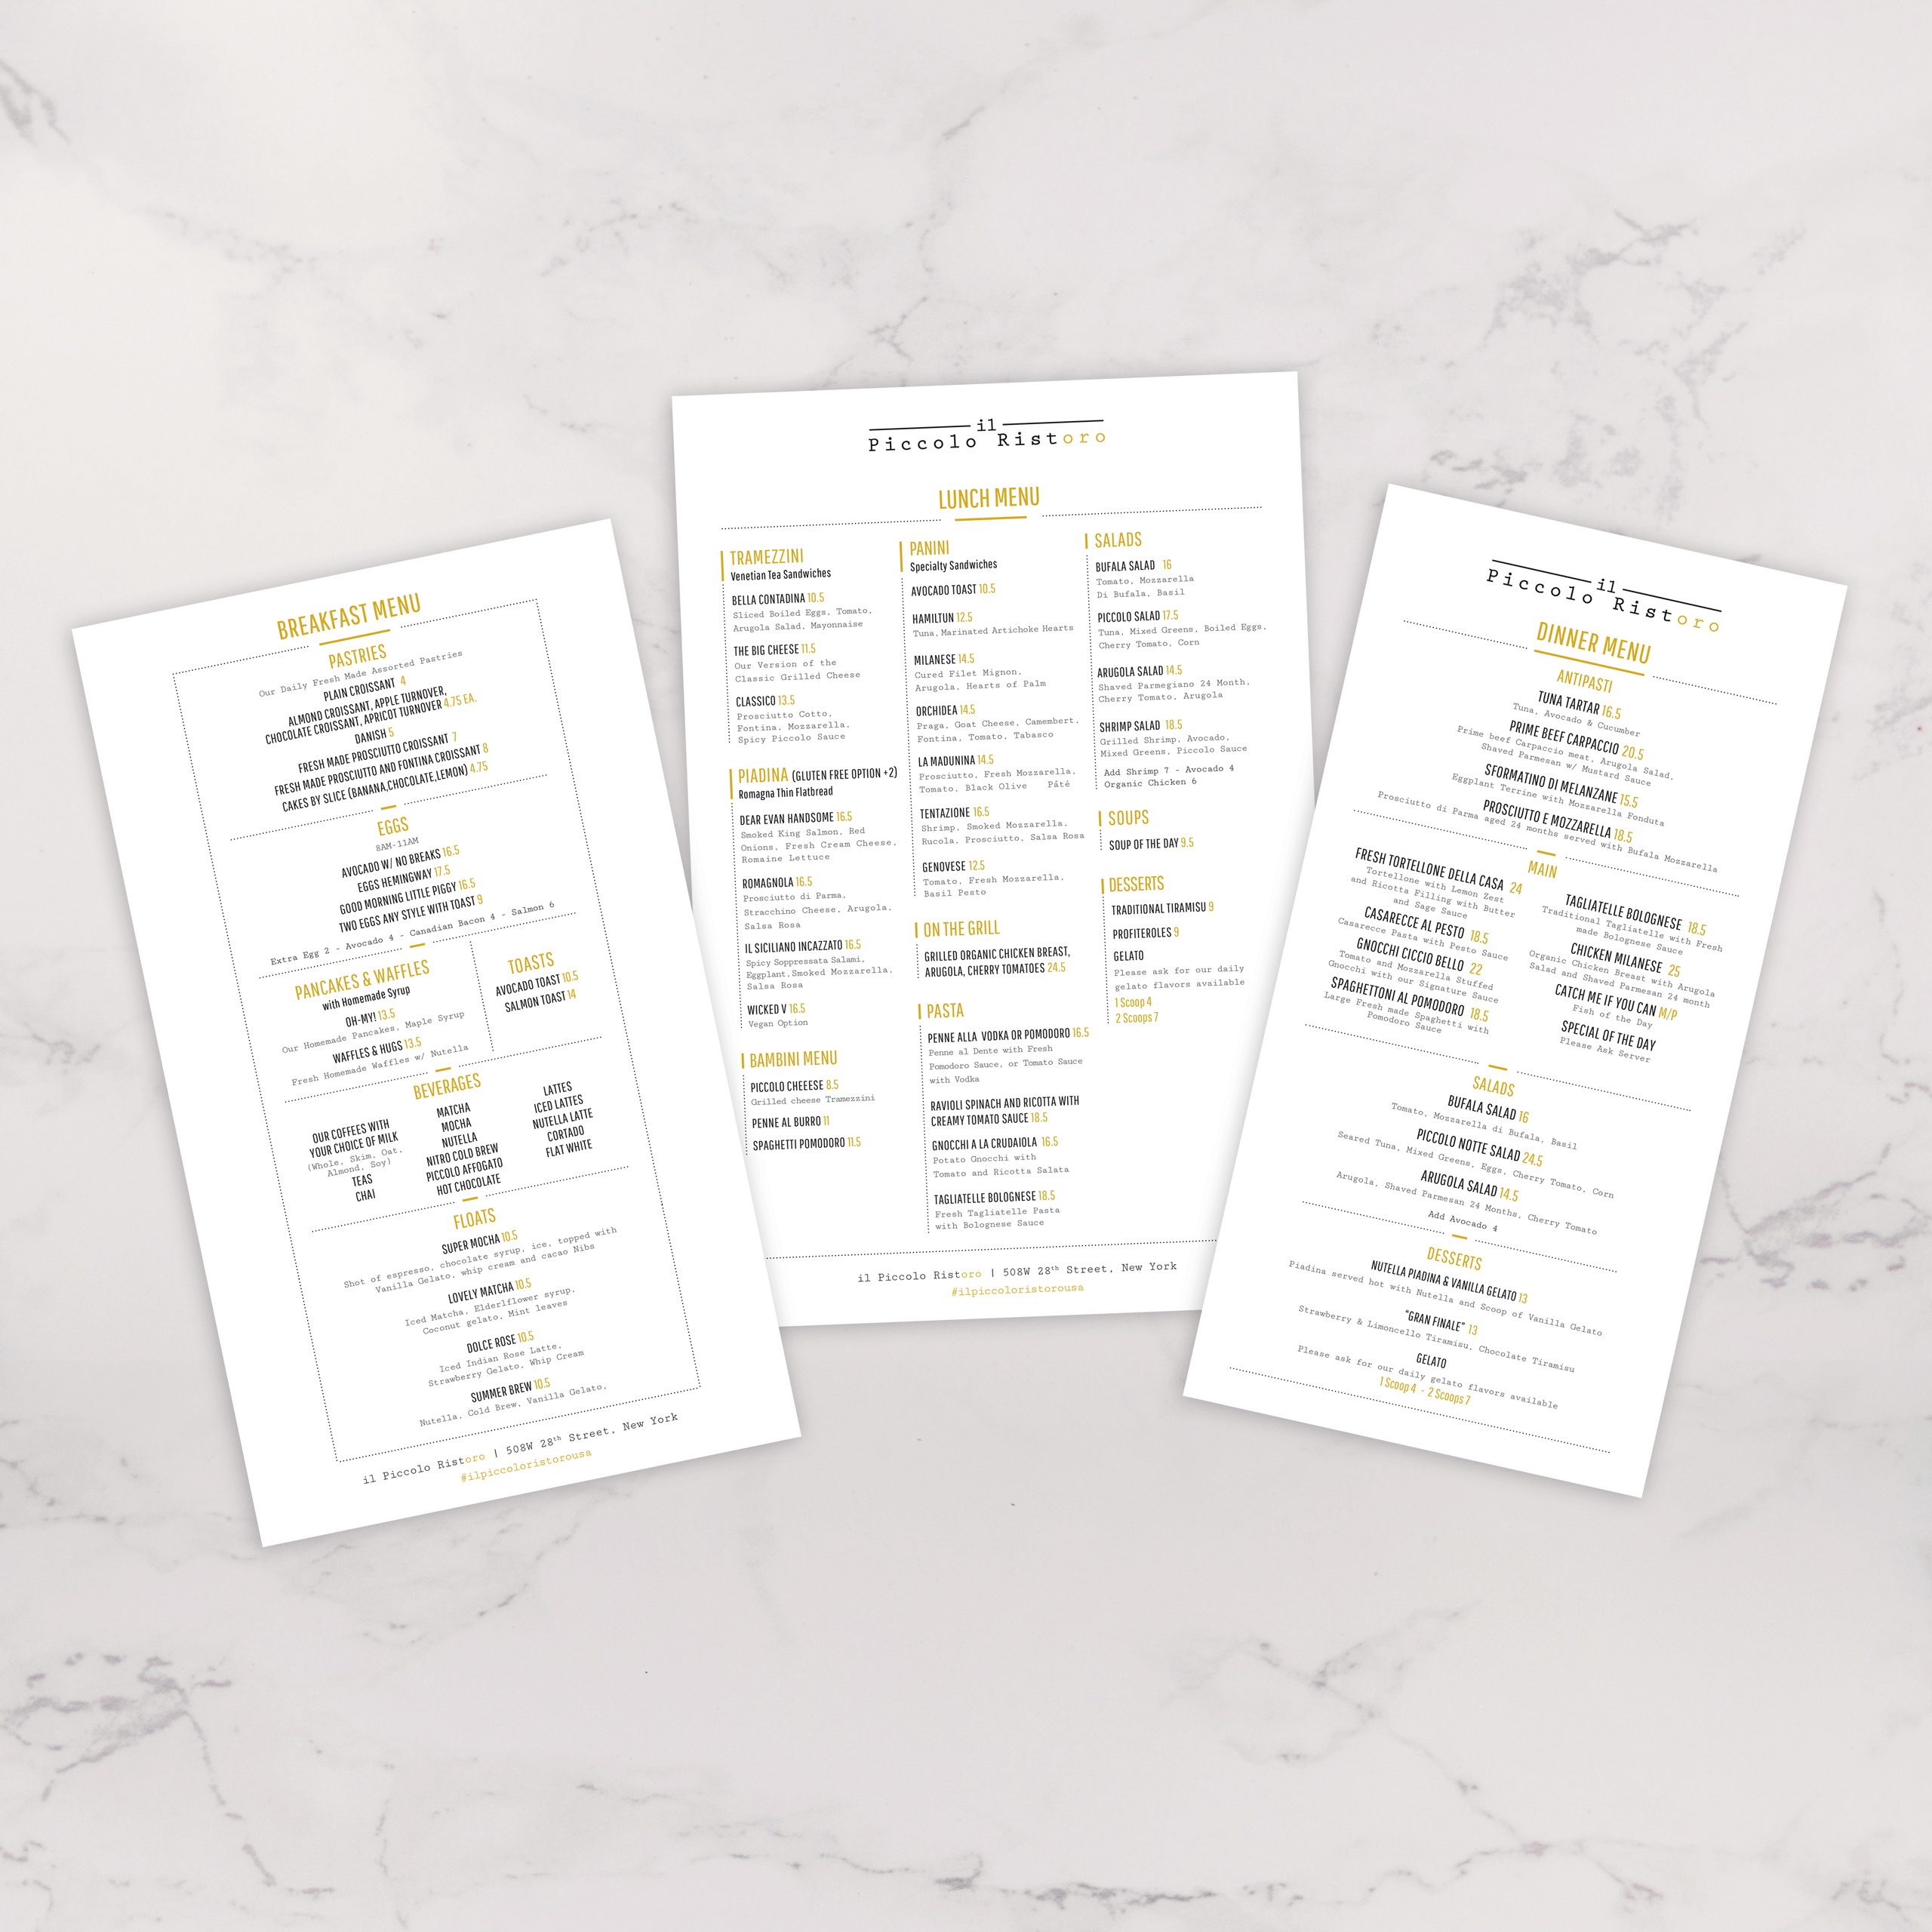 BREAKFAST MENU
PASTRIES
Our Daily Fresh Made Assorted Pastries
PLAIN CROISSANT 4
ALMOND CROISSANT, APPLE TURNOVER,
CHOCOLATE CROISSANT, APRICOT TURNOVER 4.75 EA.
DANISH 5
FRESH MADE PROSCIUTTO CROISSANT 7
FRESH MADE PROSCIUTTO AND FONTINA CROISSANT 8
CAKES BY SLICE (BANANA,CHOCOLATE,LEMON) 4.75
EGGS
8AM-11AM
AVOCADO W/ NO BREAKS 16.5
EGGS HEMINGWAY 17.5
GOOD MORNING LITTLE PIGGY 16.5
TWO EGGS ANY STYLE WITH TOAST 9
Extra Egg 2 - Avocado 4 - Canadian Bacon 4 - Salmon 6
PANCAKES & WAFFLES
with Homemade Syrup
OH-MY! 13.5
Our Homemade Pancakes, Maple Syrup
WAFFLES & HUGS 13.5
Fresh Homemade Waffles w/ Nutella
TOASTS
AVOCADO TOAST 10.5
SALMON TOAST 14
BEVERAGES
OUR COFFEES WITH
YOUR CHOICE OF MILK
(Whole, Skim, Oat,
Almond, Soy)
TEAS
CHAI
MATCHA
MOCHA
NUTELLA
NITRO COLD BREW
PICCOLO AFFOGATO
HOT CHOCOLATE
LATTES
ICED LATTES
NUTELLA LATTE
CORTADO
FLAT WHITE
FLOATS
SUPER MOCHA 10.5
Shot of espresso, chocolate syrup, ice, topped with
Vanilla Gelato, whip cream and cacao Nibs
LOVELY MATCHA 10.5
Iced Matcha, Elderlflower syrup,
Coconut gelato, Mint leaves
DOLCE ROSE 10.5
Iced Indian Rose Latte,
Strawberry Gelato, Whip Cream
SUMMER BREW 10.5
Nutella, Cold Brew, Vanilla Gelato,
il Piccolo Ristoro | 508W 28th Street, New York
#ilpiccoloristorousa
il
Piccolo Ristoro
LUNCH MENU
TRAMEZZINI
Venetian Tea Sandwiches
BELLA CONTADINA 10.5
Sliced Boiled Eggs, Tomato,
Arugola Salad, Mayonnaise
THE BIG CHEESE 11.5
Our Version of the
Classic Grilled Cheese
CLASSICO 13.5
Prosciutto Cotto,
Fontina, Mozzarella,
Spicy Piccolo Sauce
PIADINA (GLUTEN FREE OPTION +2)
Romagna Thin Flatbread
DEAR EVAN HANDSOME 16.5
Smoked King Salmon, Red
Onions, Fresh Cream Cheese,
Romaine Lettuce
ROMAGNOLA 16.5
Prosciutto di Parma,
Stracchino Cheese, Arugola,
Salsa Rosa
IL SICILIANO INCAZZATO 16.5
Spicy Soppressata Salami,
Eggplant,Smoked Mozzarella,
Salsa Rosa
WICKED V 16.5
Vegan Option
BAMBINI MENU
PICCOLO CHEEESE 8.5
Grilled cheese Tramezzini
PENNE AL BURRO 11
SPAGHETTI POMODORO 11.5
PANINI
Specialty Sandwiches
AVOCADO TOAST 10.5
HAMILTUN 12.5
Tuna,Marinated Artichoke Hearts
MILANESE 14.5
Cured Filet Mignon,
Arugola, Hearts of Palm
ORCHIDEA 14.5
Praga, Goat Cheese, Camembert,
Fontina, Tomato, Tabasco
LA MADUNINA 14.5
Prosciutto, Fresh Mozzarella,
Tomato, Black Olive Pâté
TENTAZIONE 16.5
Shrimp, Smoked Mozzarella,
Rucola, Prosciutto, Salsa Rosa
GENOVESE 12.5
Tomato, Fresh Mozzarella,
Basil Pesto
ON THE GRILL
GRILLED ORGANIC CHICKEN BREAST,
ARUGOLA, CHERRY TOMATOES 24.5
PASTA
PENNE ALLA VODKA OR POMODORO 16.5
Penne al Dente with Fresh
Pomodoro Sauce, or Tomato Sauce
with Vodka
RAVIOLI SPINACH AND RICOTTA WITH
CREAMY TOMATO SAUCE 18.5
GNOCCHI A LA CRUDAIOLA 16.5
Potato Gnocchi with
Tomato and Ricotta Salata
TAGLIATELLE BOLOGNESE 18.5
Fresh Tagliatelle Pasta
with Bolognese Sauce
SALADS
BUFALA SALAD 16
Tomato, Mozzarella
Di Bufala, Basil
PICCOLO SALAD 17.5
Tuna, Mixed Greens, Boiled Eggs,
Cherry Tomato, Corn
ARUGOLA SALAD 14.5
Shaved Parmegiano 24 Month,
Cherry Tomato, Arugola
SHRIMP SALAD 18.5
Grilled Shrimp, Avocado,
Mixed Greens, Piccolo Sauce
Add Shrimp 7 - Avocado 4
Organic Chicken 6
SOUPS
SOUP OF THE DAY 9.5
DESSERTS
TRADITIONAL TIRAMISU 9
PROFITEROLES 9
GELATO
Please ask for our daily
gelato flavors available
1 Scoop 4
2 Scoops 7
il Piccolo Ristoro | 508W 28th Street, New York
#ilpiccoloristorousa
il
Piccolo Ristoro
DINNER MENU
ANTIPASTI
TUNA TARTAR 16.5
Tuna, Avocado & Cucumber
PRIME BEEF CARPACCIO 20.5
Prime beef Carpaccio meat, Arugola Salad,
Shaved Parmesan w/ Mustard Sauce
SFORMATINO DI MELANZANE 15.5
Eggplant Terrine with Mozzarella Fonduta
PROSCIUTTO E MOZZARELLA 18.5
Prosciutto di Parma aged 24 months served with Bufala Mozzarella
MAIN
FRESH TORTELLONE DELLA CASA 24
Tortellone with Lemon Zest
and Ricotta Filling with Butter
and Sage Sauce
CASARECCE AL PESTO 18.5
Casarecce Pasta with Pesto Sauce
GNOCCHI CICCIO BELLO 22
Tomato and Mozzarella Stuffed
Gnocchi with our Signature Sauce
SPAGHETTONI AL POMODORO 18.5
Large Fresh made Spaghetti with
Pomodoro Sauce
TAGLIATELLE BOLOGNESE 18.5
Traditional Tagliatelle with Fresh
made Bolognese Sauce
CHICKEN MILANESE 25
Organic Chicken Breast with Arugola
Salad and Shaved Parmesan 24 month
CATCH ME IF YOU CAN M/P
Fish of the Day
SPECIAL OF THE DAY
Please Ask Server
SALADS
BUFALA SALAD 16
Tomato, Mozzarella di Bufala, Basil
PICCOLO NOTTE SALAD 24.5
Seared Tuna, Mixed Greens, Eggs, Cherry Tomato, Corn
ARUGOLA SALAD 14.5
Arugola, Shaved Parmesan 24 Months, Cherry Tomato
Add Avocado 4
DESSERTS
NUTELLA PIADINA & VANILLA GELATO 13
Piadina served hot with Nutella and Scoop of Vanilla Gelato
"GRAN FINALE" 13
Strawberry & Limoncello Tiramisu, Chocolate Tiramisu
GELATO
Please ask for our daily gelato flavors available
1 Scoop 4 - 2 Scoops 7